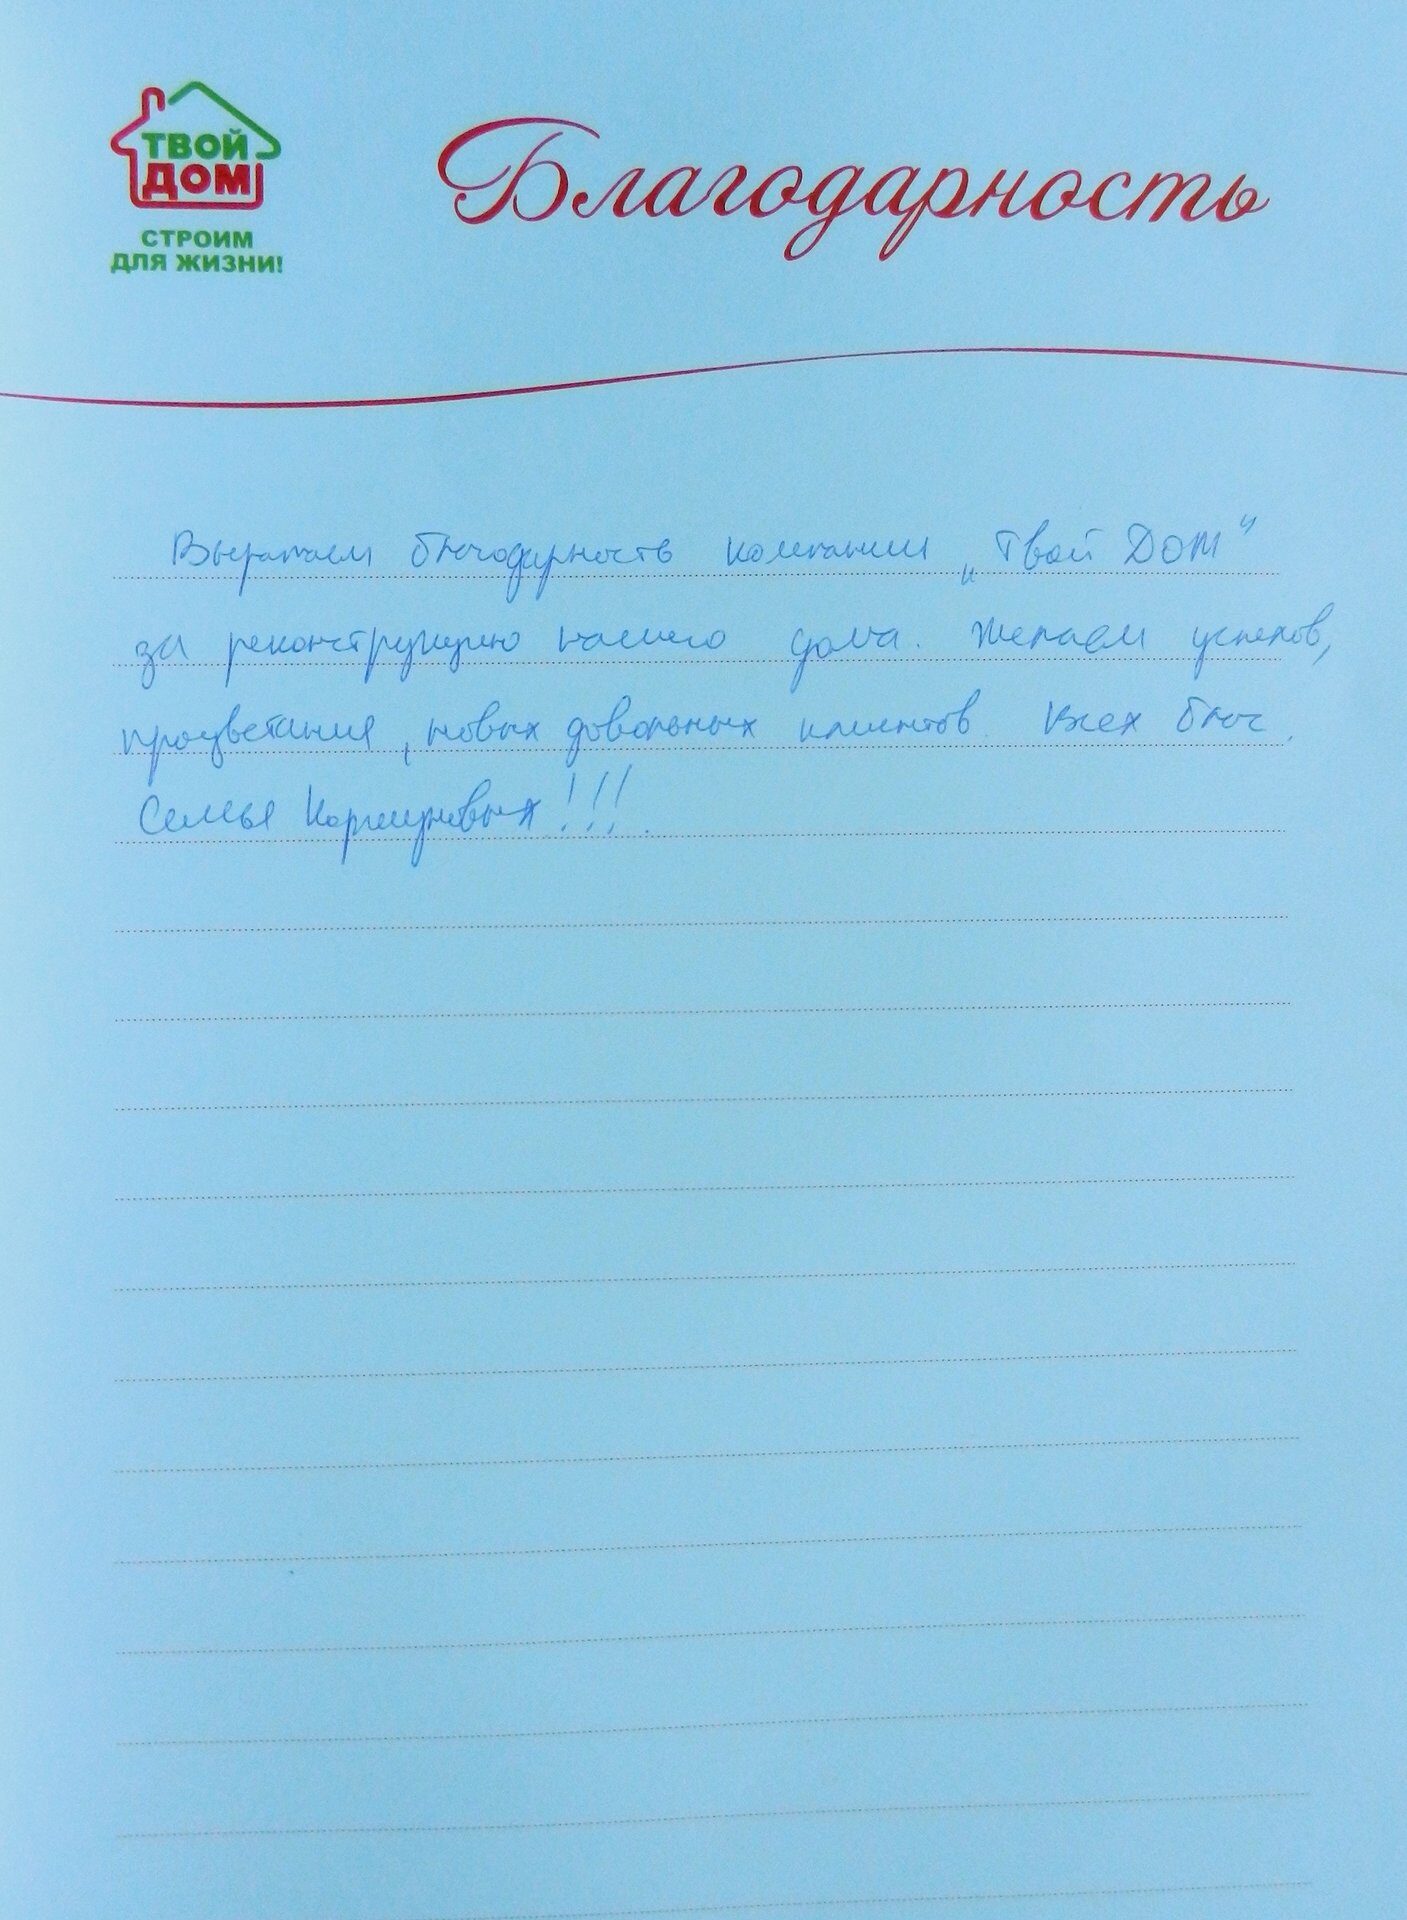 ТВОЙ
ДОМ
СТРОИМ
ДЛЯ ЖИЗНИ!
Благодарность
Выражаем благодарность компании „Твой Дом“
за реконструкцию нашего дома. Желаем успехов,
процветания, новых довольных клиентов. Всех благ.
Семья !!!